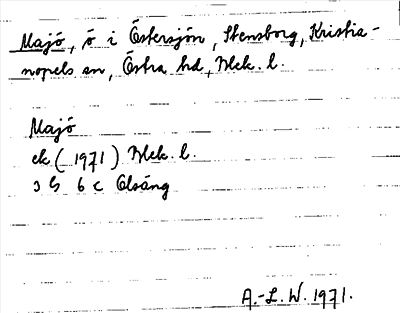 Majö, ö i Östersjön, Stensborg, Kristia-
nopels sn, Östra hd, Blek. l.
Majö
ek (1971) Blek. l.
3 G 6 c Olsäng
A.-L. W. 1971.